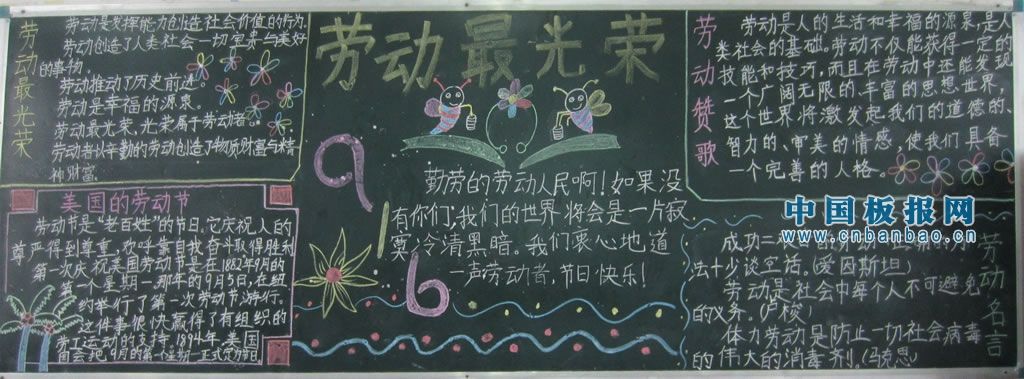 劳动最光荣
劳动最光荣
劳动是发挥能力创造社会价值的行为.
劳动创造了人类社会一切宝贵与美好
的事物.
劳动推动了历史前进.
劳动是幸福的源泉。
劳动最光荣,光荣属于劳动者.
劳动者以辛勤的劳动创造了物质财富与精
神财富.
美国的劳动节
劳动节是“老百姓”的节日.它庆祝人的
尊严得到尊重,欢呼靠自我奋斗取得胜利
第一次庆祝美国劳动节是在1882年9月的
第一个星期一.那年的9月5日,在纽
约举行了第一次劳动节游行。
这件事很快赢得了有组织的
劳工运动的支持.1894年,美国
国会把9月的第一个星期一正式定为节日
勤劳的劳动人民啊!如果没
有你们,我们的世界将会是一片寂
寞冷清黑暗。我们衷心地道
一声劳动者,节日快乐!
劳动赞歌
劳动是人的生活和幸福的源泉,是人
类社会的基础,劳动不仅能获得一定的
技能和技巧,而且在劳动中还能发现
一个广阔无限的.丰富的思想世界,
这个世界将激发起我们的道德的、
智力的、审美的情感,使我们具备
一个完善的人格。
中国板报网
www.cnbanbao.cn
劳动名言
成功三
法十少谈空话。(爱因斯坦)
劳动是社会中每个人不可避免
的义务。(卢梭)
体力劳动是防止一切社会病毒
的伟大的消毒剂。(马克思)